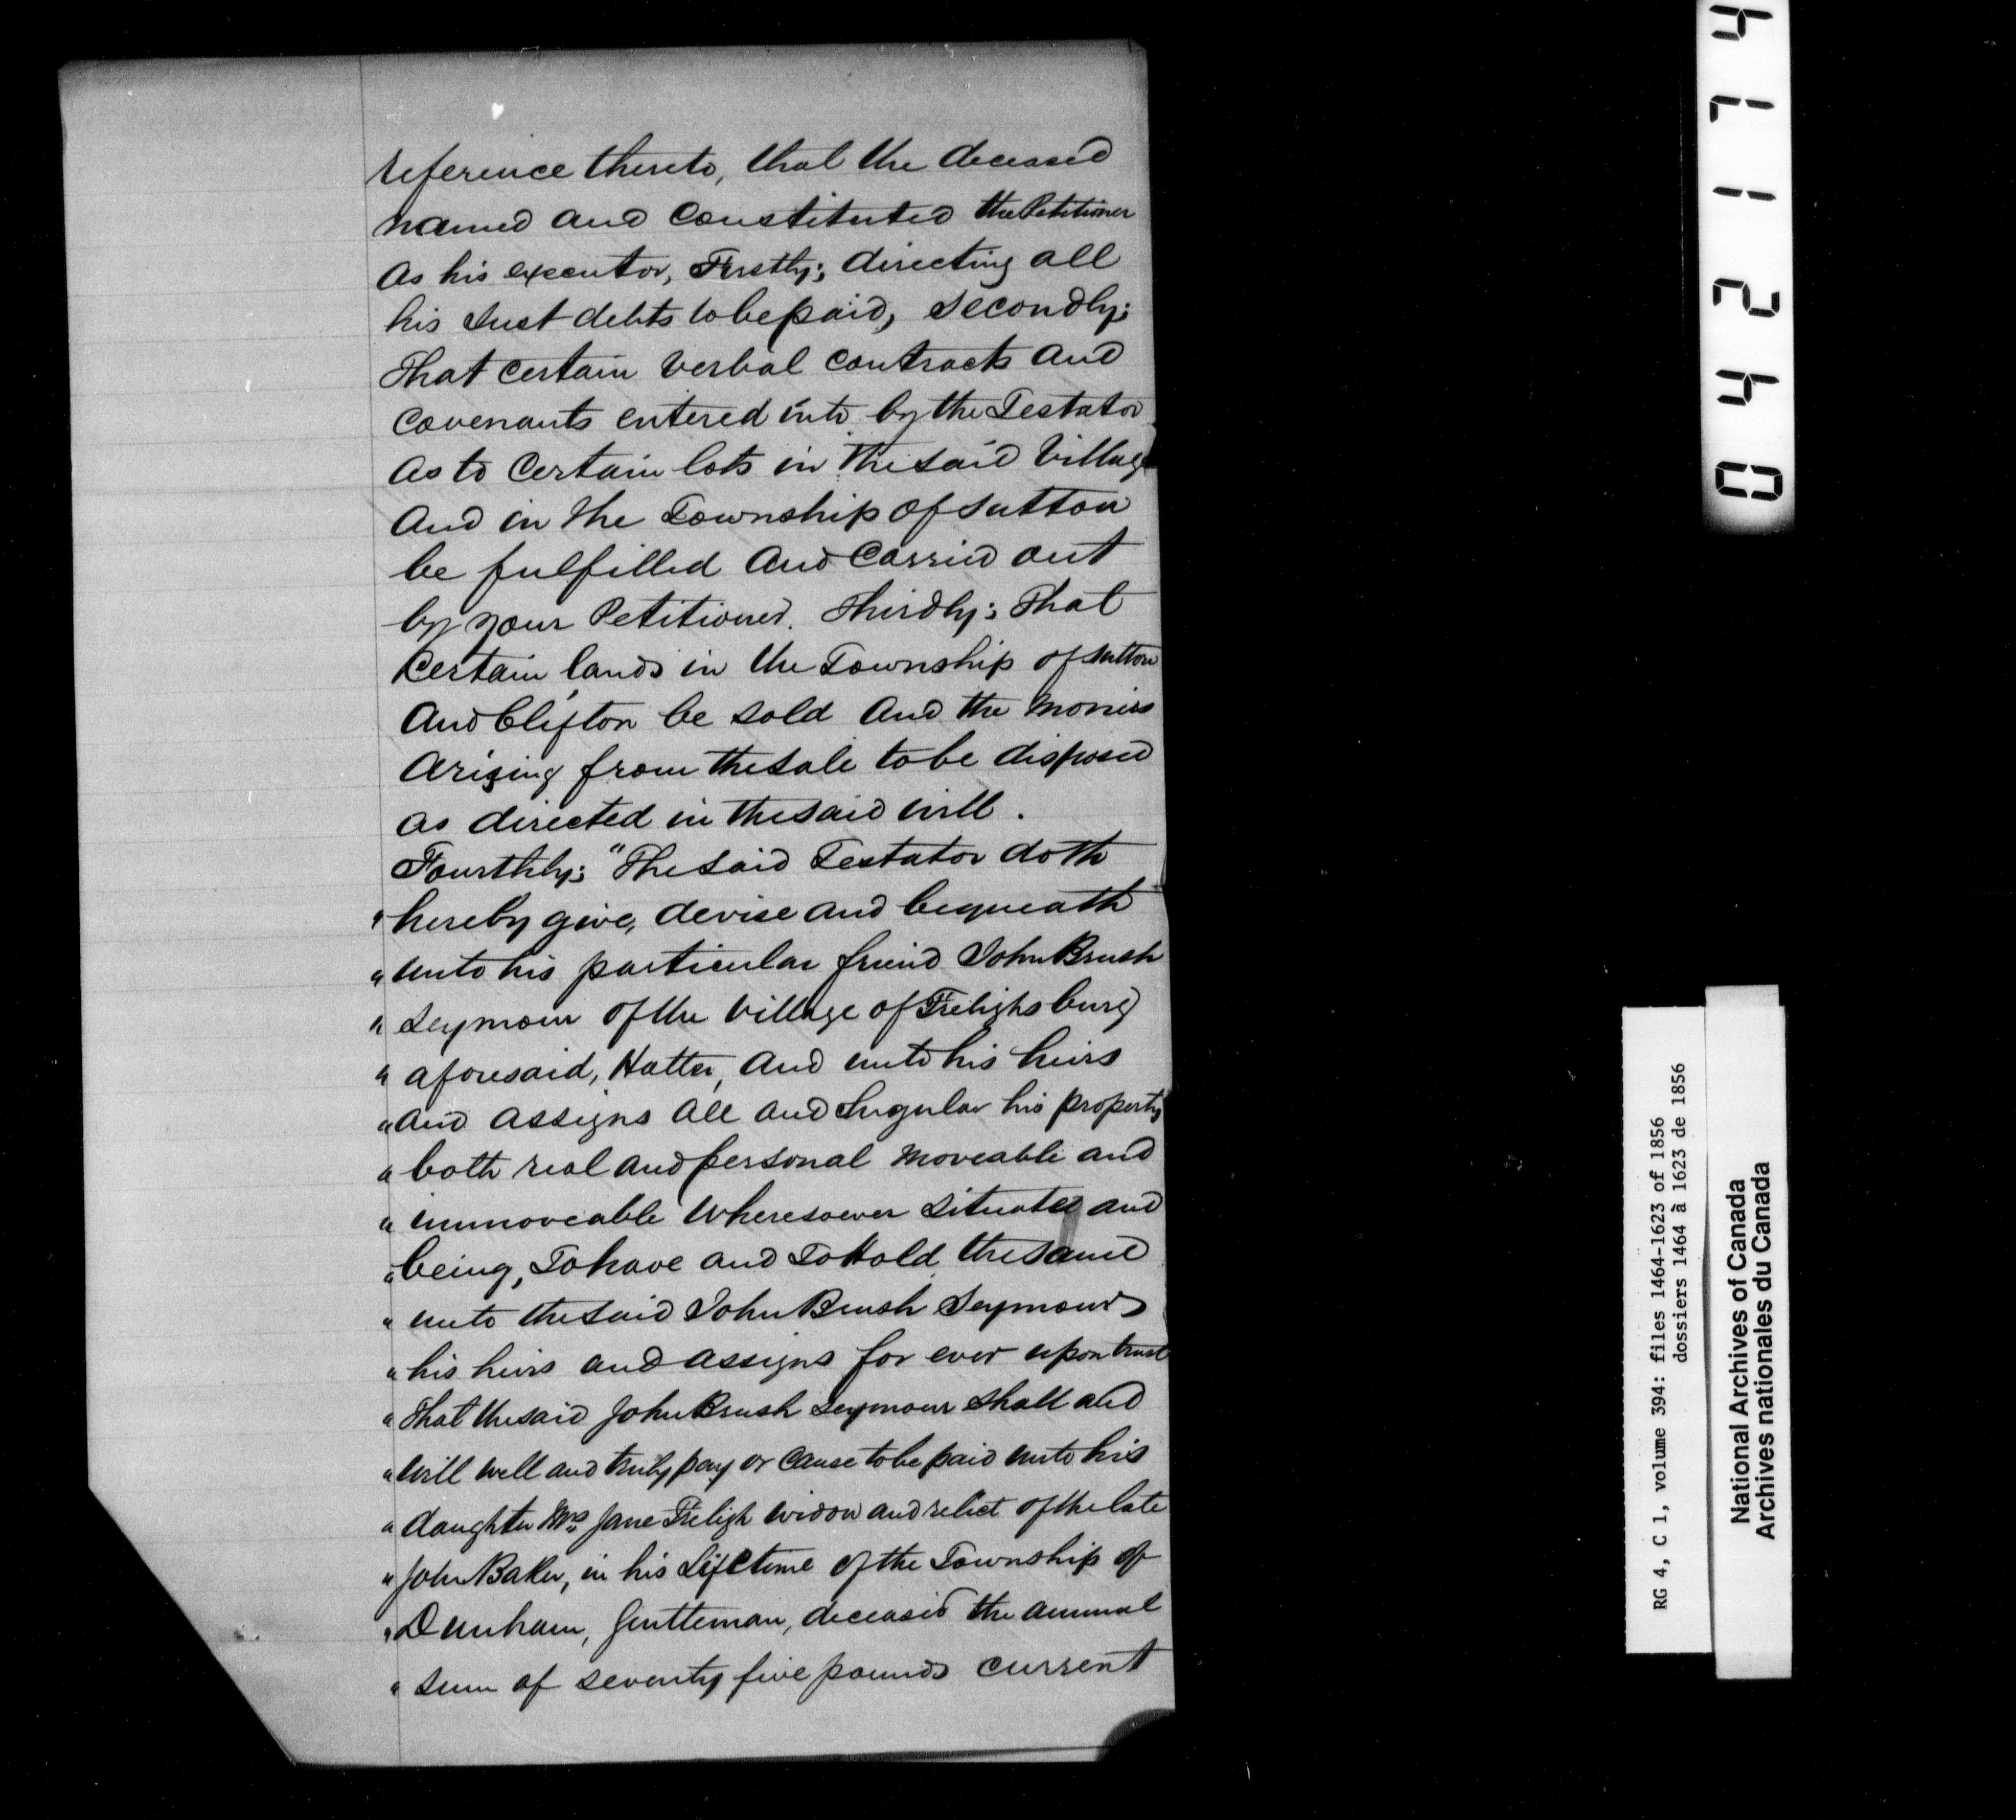 reference thereto, that the deceased
named and constituted the Petitioner
As his executor, Firstly; directing all
his Just debts to be paid, Secondly;
That certain verbal contracts and
Covenants entered into by the Testator
As to Certain lots in the said Village
And in the Township of Sutton
be fulfilled And Carried out
by your Petitioner. Thirdly; That
Certain lands in the Township of Sutton
And Clifton be sold And the Monies
Arising from the sale to be disposed
as directed in the said will.
Fourthly; "The said Testator doth
" hereby give, devise and bequeath
" unto his particular friend John Brush
" Seymour of the Village of Frelighsburg
" aforesaid, Hatter, And unto his heirs
" And assigns All And Singular his property
" both real and personal Moveable and
" immoveable Wheresoever Situated and
" being, To have and To Hold the same
" unto the said John Brush Seymour
" his heirs and assigns for ever upon trust
" That the said John Brush Seymour Shall and
" will well and truly pay or Cause to be paid unto his
" daughter Mrs Jane Freligh widow and relict of the late
" John Baker, in his Lifetime of the Township of
" Dunham, Gentleman, deceased the annual
" Sum of seventy five pounds current
04217 4
RG 4, C 1, volume 394: files 1464-1623 of 1856
dossiers 1464 à 1623 de 1856
National Archives of Canada
Archives nationales du Canada